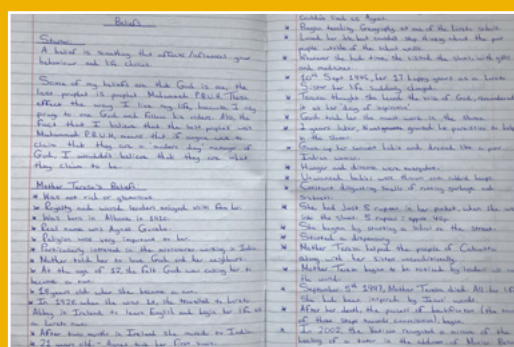 Beliefs
Starter:
A belief is something that affects/influences your
behaviour and life choices.
Some of my beliefs are that God is one, the
last prophet is prophet Muhammad P.B.U.H. These
effect the way I live my life, because I only
pray to one God and follow his orders. Also, the
fact that I believe that the last prophet was
Muhammad P.B.U.H, means that if anyone were to
claim that they are a 'modern day' messenger of
God, I wouldn't believe that they are what
they claim to be.
Mother Teresa's Beliefs
* Was not rich or glamorous.
* Royalty and world leaders enjoyed
* Was born in Albania in 1910.
* Real name was Agnes
* Religion was very important to her.
* Particularly interested in the missionaries working in India.
* Mother told her to love God and her neighbours.
* At the age of 12, she felt God was calling her to
become a nun.
* 18 years old when she became a nun.
* In 1928, when she was 18, she travelled to Loreto
Abbey in Ireland to learn English and begin her life as
a Loreto nun.
* After two months in Ireland she moved to India.
* 21 years old - Agnes took her first vows.
* Began teaching Geography at one of the Loreto schools.
* Loved her life but couldn't stop thinking about the poor
people outside of the school walls.
* Whenever she had time, she visited the slums, with girls
and medicines.
* 10th Sept 1946, her 17 happy years as a Loreto
Sister her life suddenly changed.
* Teresa thought she heard the voice of God, remembered
it as her 'day of inspiration'.
* God told her she must work in the slums.
* 2 years later, granted her permission to help
in the slums.
* Gave up her convent habit and dressed like a poor
Indian woman.
* Hunger and disease were everywhere.
* Unwanted babies were thrown onto rubbish heaps.
* Constant disgusting smells of running garbage and
* She had just 5 rupees in her pocket, when she
into the slums. 5 rupees = approx 40p.
* She began by starting a school on the street.
* Started a dispensary.
* Mother Teresa helped the people of Calcutta
along with her sisters unconditionally.
* Mother Teresa began to be noticed by leaders
the world.
* September 5th 1997, Mother Teresa died. All her life
She had been inspired by Jesus' words.
* After her death, the process of beatification (the
of three steps towards canonisation) began.
* In 2002, the Vatican recognised a miracle of the
healing of a tumor in the abdomen of Monica Besra